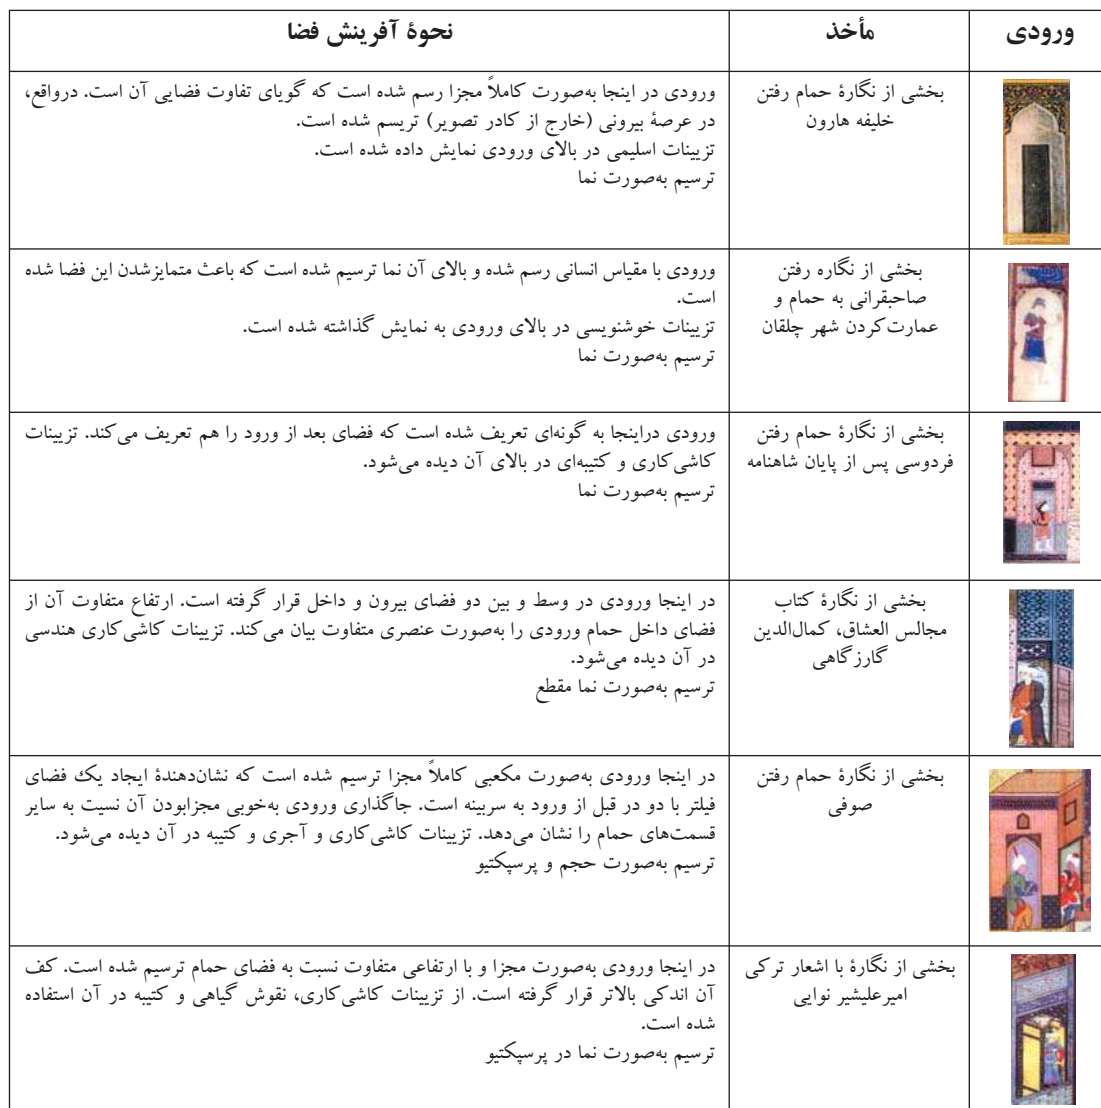 ورودی
مأخذ
نحوهٔ آفرینش فضا
بخشی از نگارهٔ حمام رفتن
خلیفه هارون
ورودی در اینجا به‌صورت کاملاً مجزا رسم شده است که گویای تفاوت فضایی آن است. درواقع،
در عرصهٔ بیرونی (خارج از کادر تصویر) تریسم شده است.
تزیینات اسلیمی در بالای ورودی نمایش داده شده است.
ترسیم به‌صورت نما
بخشی از نگاره رفتن
صاحبقرانی به حمام و
عمارت‌کردن شهر چلقان
ورودی با مقیاس انسانی رسم شده و بالای آن نما ترسیم شده است که باعث متمایزشدن این فضا شده
است.
تزیینات خوشنویسی در بالای ورودی به نمایش گذاشته شده است.
ترسیم به‌صورت نما
بخشی از نگارهٔ حمام رفتن
فردوسی پس از پایان شاهنامه
ورودی دراینجا به گونه‌ای تعریف شده است که فضای بعد از ورود را هم تعریف می‌کند. تزیینات
کاشی‌کاری و کتیبه‌ای در بالای آن دیده می‌شود.
ترسیم به‌صورت نما
بخشی از نگارهٔ کتاب
مجالس العشاق، کمال‌الدین
گارزگاهی
در اینجا ورودی در وسط و بین دو فضای بیرون و داخل قرار گرفته است. ارتفاع متفاوت آن از
فضای داخل حمام ورودی را به‌صورت عنصری متفاوت بیان می‌کند. تزیینات کاشی‌کاری هندسی
در آن دیده می‌شود.
ترسیم به‌صورت نما مقطع
بخشی از نگارهٔ حمام رفتن
صوفی
در اینجا ورودی به‌صورت مکعبی کاملاً مجزا ترسیم شده است که نشان‌دهندهٔ ایجاد یک فضای
فیلتر با دو در قبل از ورود به سربینه است. جاگذاری ورودی به‌خوبی مجزابودن آن نسیت به سایر
قسمت‌های حمام را نشان می‌دهد. تزیینات کاشی‌کاری و آجری و کتیبه در آن دیده می‌شود.
ترسیم به‌صورت حجم و پرسپکتیو
بخشی از نگارهٔ با اشعار ترکی
امیرعلیشیر نوایی
در اینجا ورودی به‌صورت مجزا و با ارتفاعی متفاوت نسبت به فضای حمام ترسیم شده است. کف
آن اندکی بالاتر قرار گرفته است. از تزیینات کاشی‌کاری، نقوش گیاهی و کتیبه در آن استفاده
شده است.
ترسیم به‌صورت نما در پرسپکتیو